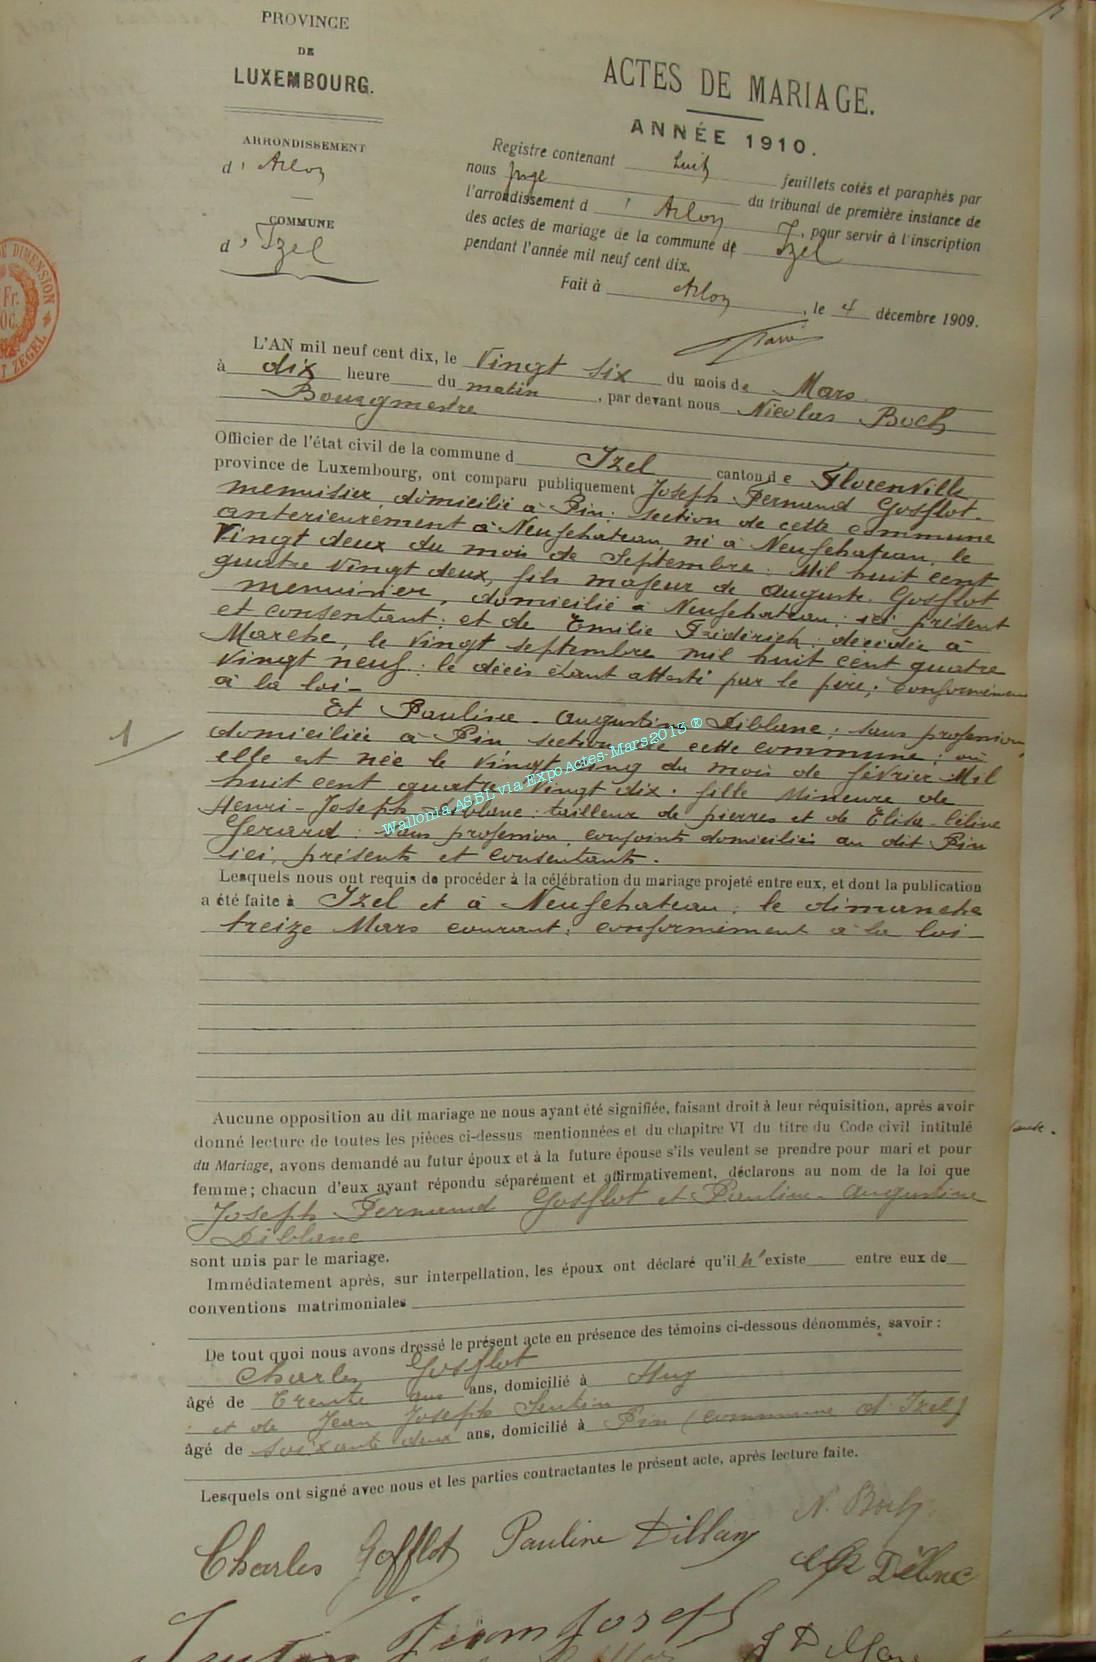 PROVINCE
DE
LUXEMBOURG.
ARRONDISSEMENT
d' Arlon
COMMUNE
d' Izel
ACTES DE MARIAGE.
ANNÉE 1910.
Registre contenant huit feuillets cotés et paraphés par
nous juge du tribunal de première instance de
l'arrondissement d' Arlon, pour servir à l'inscription
des actes de mariage de la commune d' Izel
pendant l'année mil neuf cent dix.
Fait à Arlon, le 4 décembre 1909.
L'AN mil neuf cent dix, le vingt six du mois de Mars
à dix heure du matin, par devant nous Nicolas Boch
Bourgmestre
Officier de l'état civil de la commune d Izel canton de Florenville
province de Luxembourg, ont comparu publiquement Joseph Fernand Gofflot
menuisier domicilié à Pin, section de cette commune
antérieurement à Neufchateau né à Neufchateau, le
vingt deux du mois de Septembre Mil huit cent
quatre vingt deux, fils majeur de Auguste Gofflot
menuisier, domicilié à Neufchateau; ici présent
et consentant; et de Emilie Fridérich; décédée à
Marche, le vingt septembre mil huit cent quatre
vingt neuf; le décès étant attesté par le père; conformément
à la loi -
1
Et Pauline - Augustine Diblanc; sans profession
domiciliée à Pin section de cette commune; où
elle est née le vingt cinq du mois de février Mil
huit cent quatre vingt dix. fille Mineure de
Henri - Joseph Diblanc tailleur de pierres et de Elisa Céline
Gerard sans profession, conjoints domiciliés au dit Pin
ici présents et consentants.
Lesquels nous ont requis de procéder à la célébration du mariage projeté entre eux, et dont la publication
a été faite à Izel et à Neufchateau; le dimanche
treize Mars courant; conformément à la loi -
Aucune opposition au dit mariage ne nous ayant été signifiée, faisant droit à leur réquisition, après avoir
donné lecture de toutes les pièces ci-dessus mentionnées et du chapitre VI du titre du Code civil intitulé
du Mariage, avons demandé au futur époux et à la future épouse s'ils veulent se prendre pour mari et pour
femme; chacun d'eux ayant répondu séparément et affirmativement, déclarons au nom de la loi que
Joseph Fernand Gofflot et Pauline - Augustine
Diblanc
sont unis par le mariage.
Immédiatement après, sur interpellation, les époux ont déclaré qu'il n'existe entre eux de
conventions matrimoniales
De tout quoi nous avons dressé le présent acte en présence des témoins ci-dessous dénommés, savoir :
Charles Gofflot
âgé de trente ans ans, domicilié à Huy
et de Jean Joseph
âgé de soixante deux ans, domicilié à Pin (commune d'Izel)
Lesquels ont signé avec nous et les parties contractantes le présent acte, après lecture faite.
N. Boch
Charles Gofflot Pauline
Jean Joseph
Wallonia ASBL via Expo Actes-Mars2013 ®